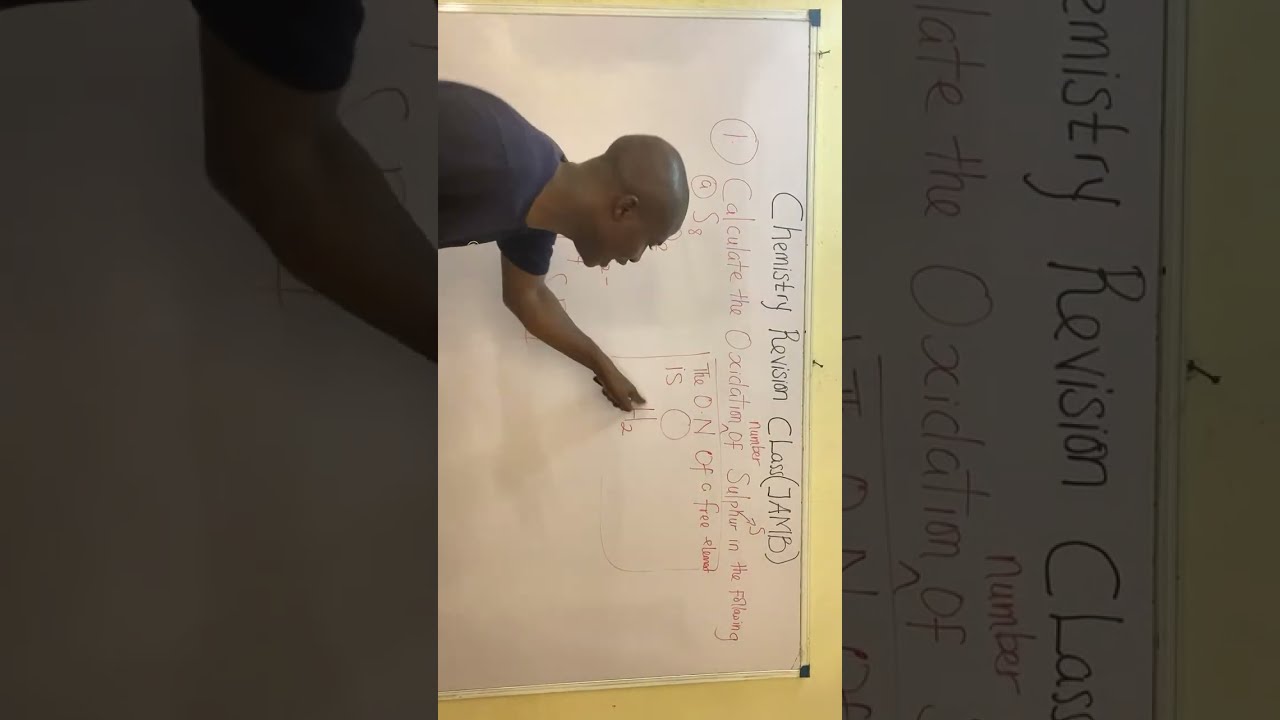 Chemistry Revision CLass(JAMB)
① Calculate the Oxidation number of Sulphur in the Following
→S
ⓐ S₈
The O.N Of a free element
is O
H₂